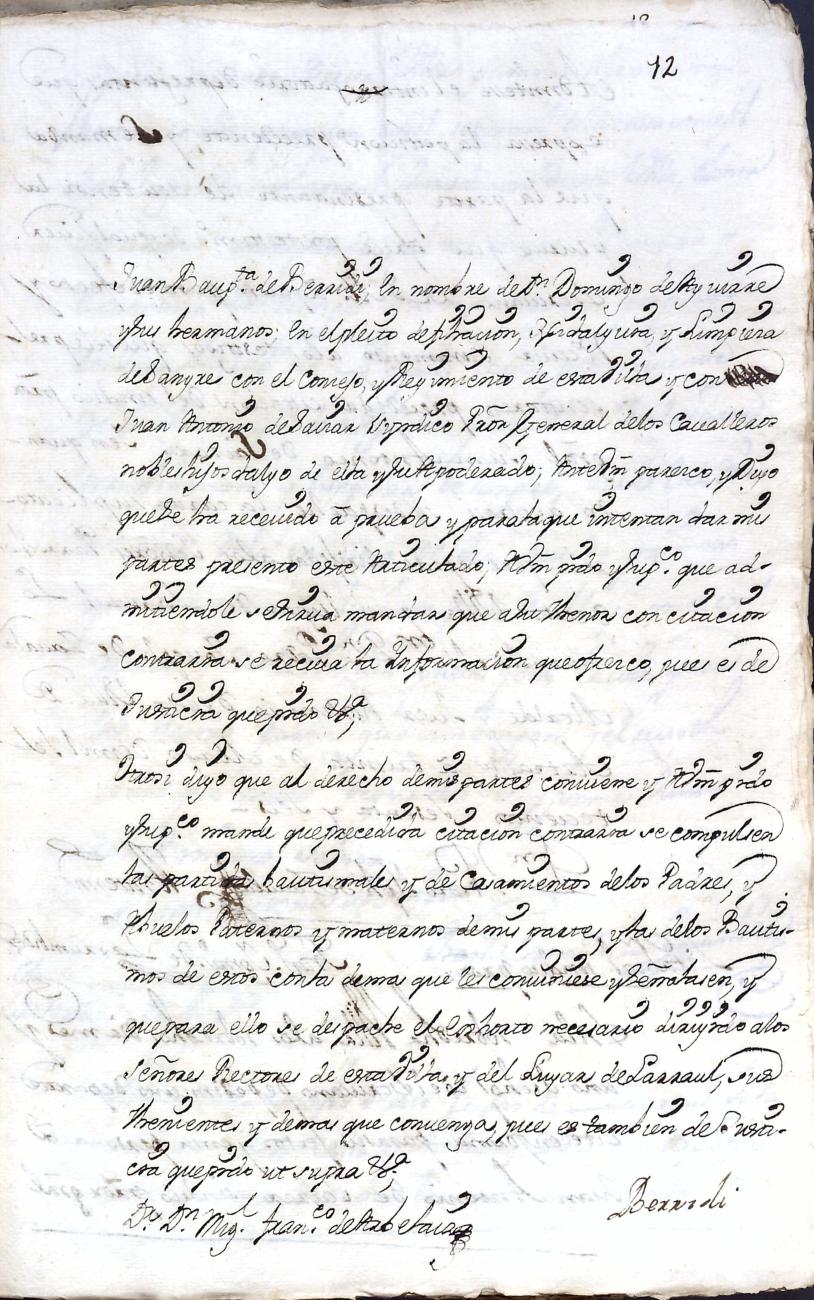 12
Juan Baup.ta de Berridi, En nombre de D.n Domingo de Aguirre
y sus hermanos; En el pleito de filiacion, Hidalguia, y Limpieza
de Sangre con el Conzejo, y Regimiento de esta Villa y con
Juan Antonio de Saizar Syndico Pror General delos Cavalleros
nobles hijos dalgo de ella y su Apoderado; Ante Vm parezco, y Digo
que se ha recevido â prueba y para la que intentan dar mis
partes presento este Articulado; A Vm pido y sup.co que ad-
mitiendole se sirva mandar que a su thenor con citacion
contraria se reciva la Informacion que ofrezco, pues es de
Justicia que pido &a;
Otrosi digo que al derecho de mis partes conviene y A Vm pido
y sup.co mande que precedida citacion contraria se compulsen
las partidas bautismales y de Casamientos delos Padres, y
Abuelos Paternos y maternos de mis partes, y las delos Bautis-
mos de estos con la demas que les conviniese y señalasen, y
que para ello se despache el Exhorto necesario dirigido alos
Señores Rectores de esta Villa, y del Lugar de Larraul, sus
thenientes y demas que convenga, pues es tambien de Justi-
cia que pido ut supra &a;
Berridi
D.r D.n Mig.l Fran.co de